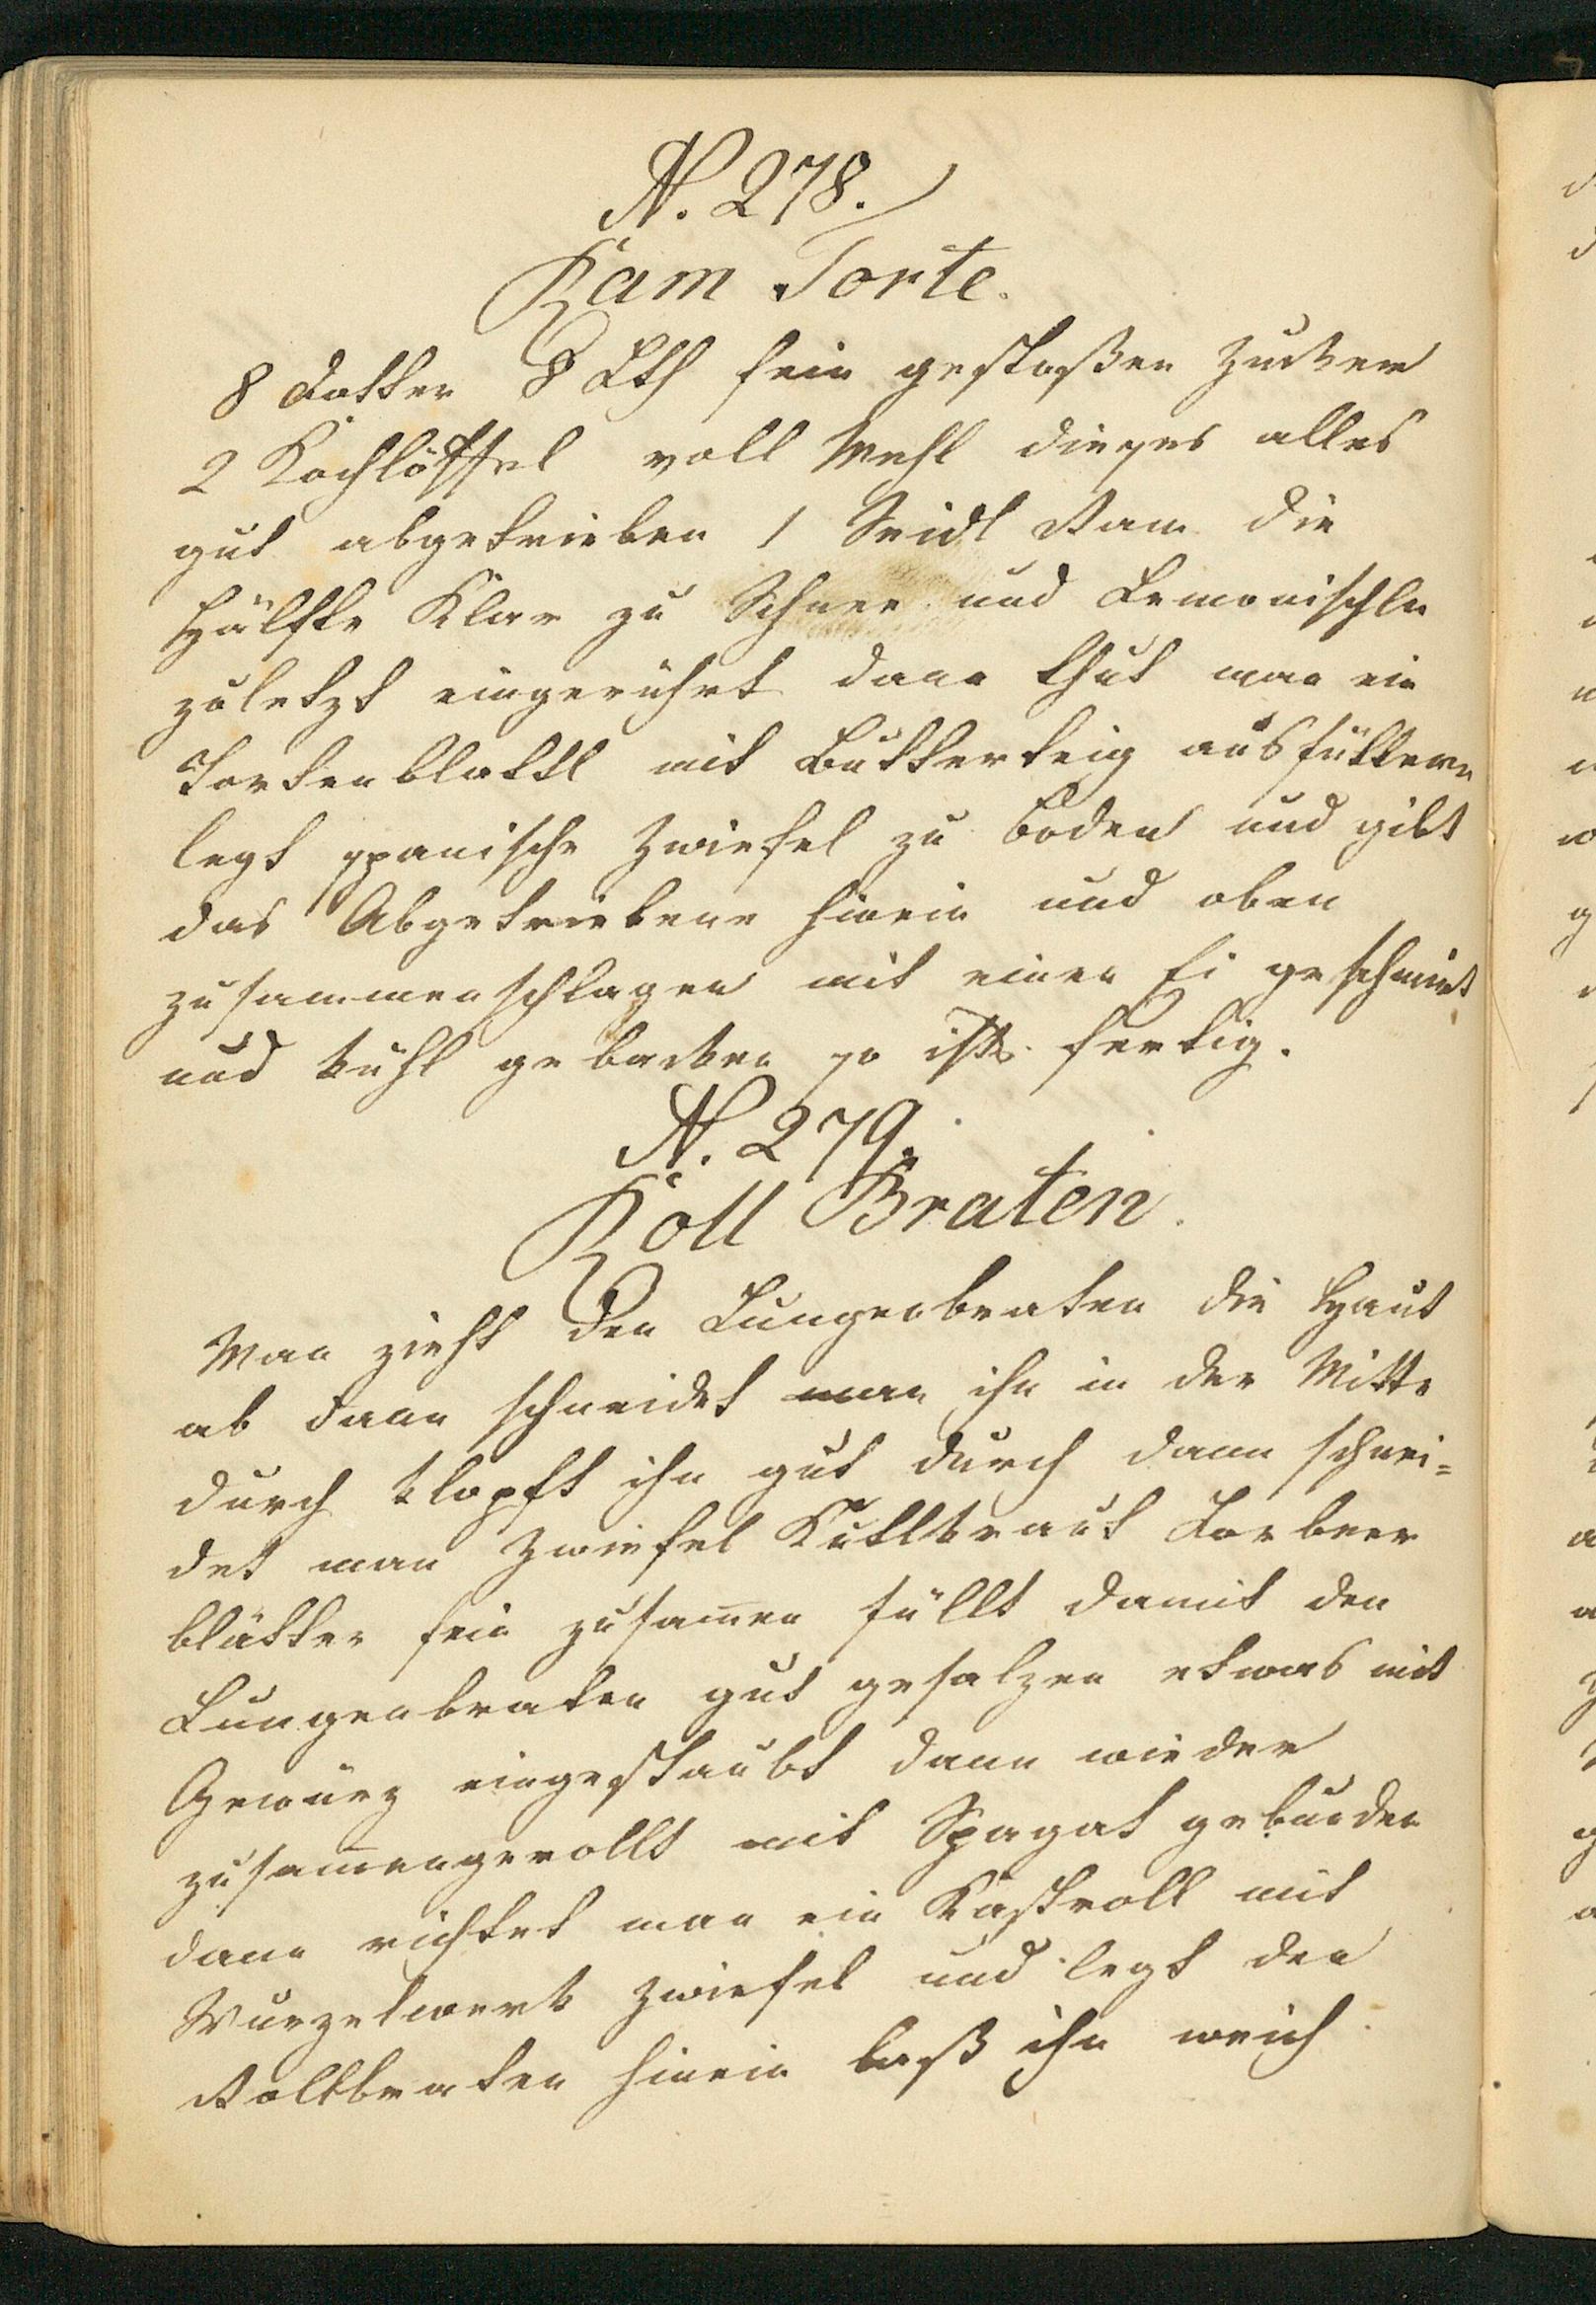 N. 278.
Ram Torte.
8 Dotter 8 Lth fein gestoßen Zucker
2 Kochlöffel voll Mehl dieses alles
gut abgetrieben 1 Seidl Ram die
Hälfte Klar zu Schnee und Lemonischln
zuletzt eingerührt dann thut man ein
Tortenblattl mit Butterteig ausfüttern
legt spanische Zwiefel zu Boden und gibt
das Abgetriebene hinein und oben
zusammenschlagen mit einen Ei geschmirt
und kühl gebacken so ists fertig.
N. 279.
Roll Braten.
Man zieht den Lungenbraten die Haut
ab dann schneidet man ihn in der Mitte
durch klopft ihn gut durch dann schnei=
det man Zwiefel Kuttlkraut Lorbeer
blätter fein zusam̅en füllt damit den
Lungenbraten gut gesalzen etwas mit
Gewürz eingestaubt dann wieder
zusam̅engerollt mit Spagat gebunden
dann richtet man ein Kastroll mit
Wurzelwerk Zwiefel und legt den
Rollbraten hinein laß ihn weich